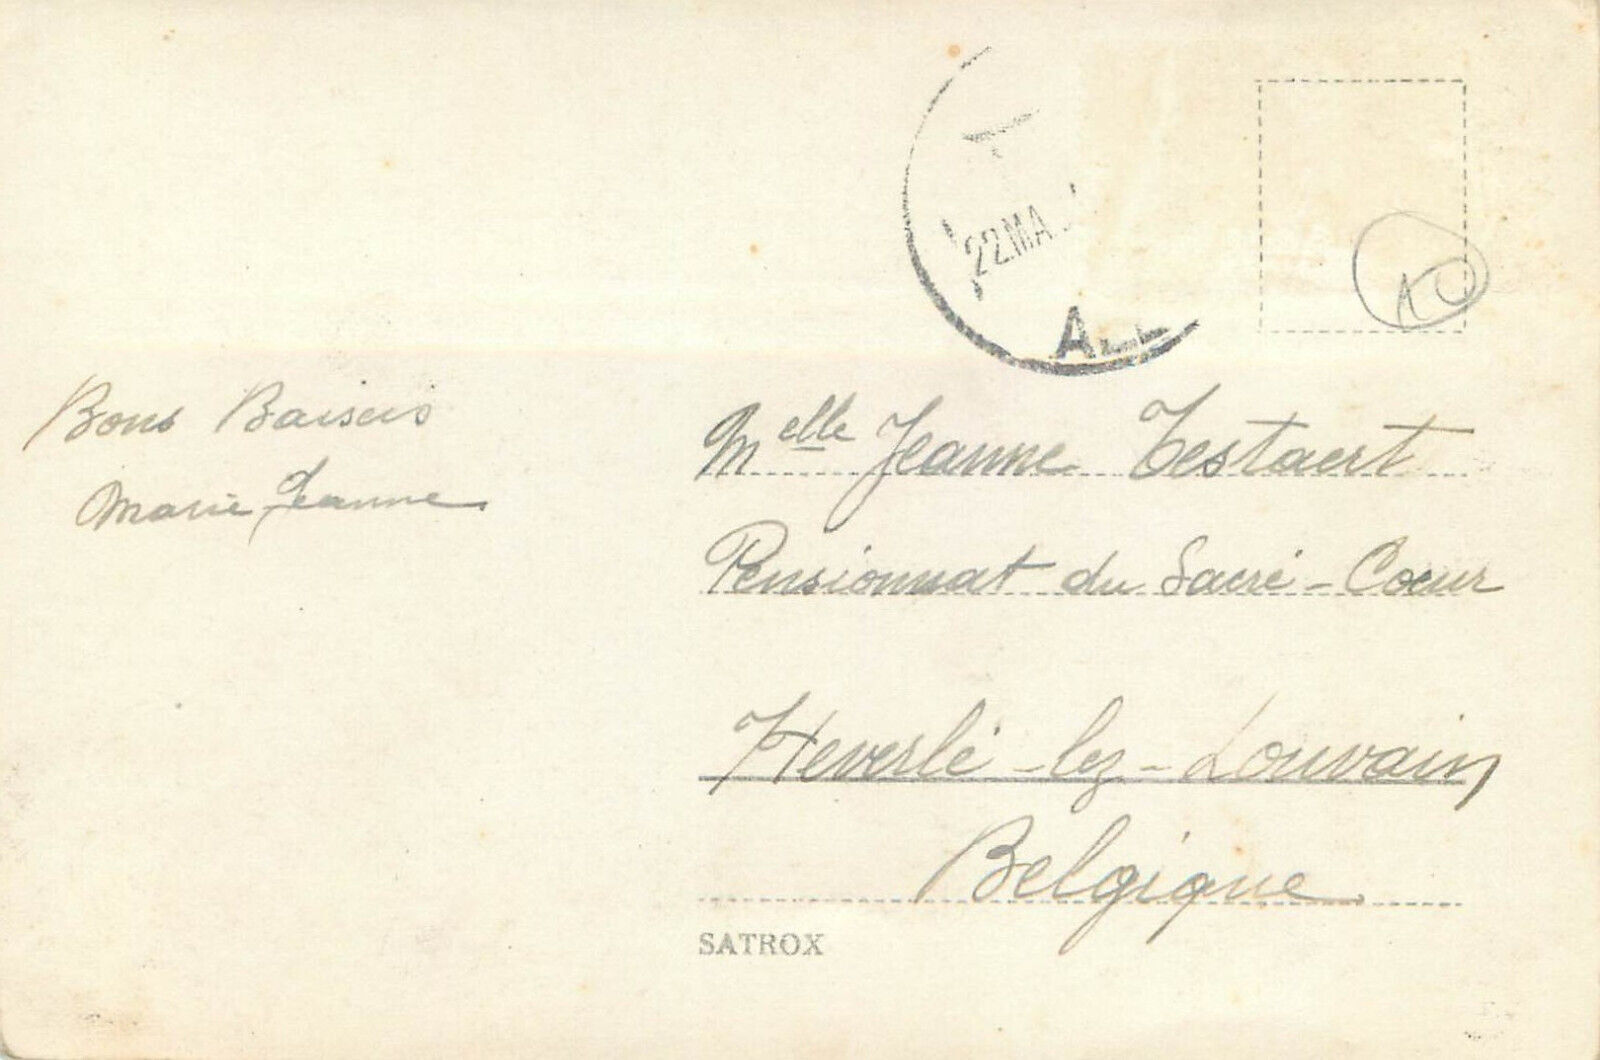 22 MA
A
Bons Baisers
Marie Jeanne
Melle Jeanne Testaert
Pensionnat du Sacré-Coeur
Heverlé-lez-Louvain
Belgique
SATROX